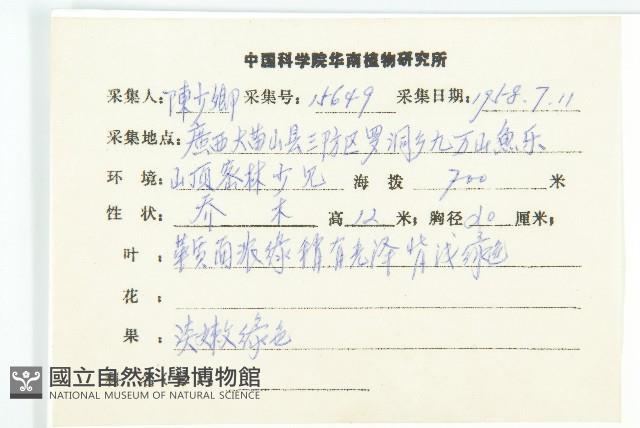 中国科学院华南植物研究所
采集人: 陳少卿 采集号: 15649 采集日期: 1958.7.11
采集地点: 廣西大苗山县三防区罗洞乡九万山魚乐
环 境: 山顶密林少见 海 拔 700 米
性 状: 乔 木 高 12 米; 胸径 20 厘米;
叶 : 革質面深绿 稍有光泽 背浅绿色
花 :
果 : 淡嫩绿色
國立自然科學博物館
NATIONAL MUSEUM OF NATURAL SCIENCE